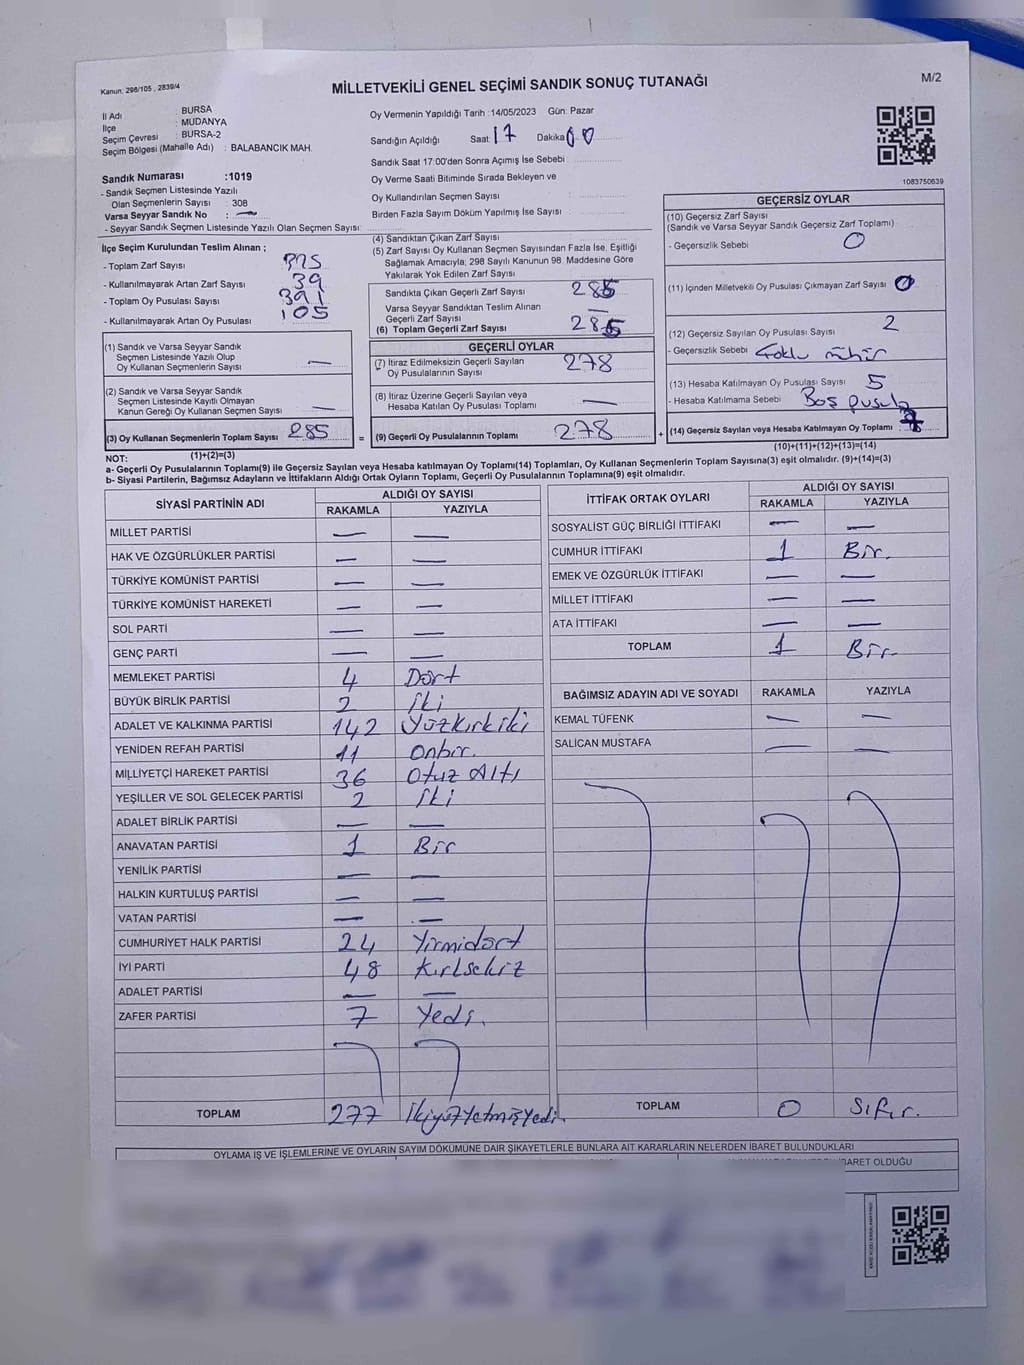 Kanun, 298/105 , 2839/4
MİLLETVEKİLİ GENEL SEÇİMİ SANDIK SONUÇ TUTANAĞI
M/2
İl Adı : BURSA
İlçe : MUDANYA
Seçim Çevresi : BURSA-2
Seçim Bölgesi (Mahalle Adı) : BALABANCIK MAH.
Oy Vermenin Yapıldığı Tarih :14/05/2023 Gün: Pazar
Sandığın Açıldığı Saat 17 Dakika 00
Sandık Saat 17:00'den Sonra Açımış İse Sebebi :
Oy Verme Saati Bitiminde Sırada Bekleyen ve
Oy Kullandırılan Seçmen Sayısı :
Birden Fazla Sayım Döküm Yapılmış İse Sayısı :
1083750639
Sandık Numarası :1019
- Sandık Seçmen Listesinde Yazılı
Olan Seçmenlerin Sayısı : 308
Varsa Seyyar Sandık No : —
- Seyyar Sandık Seçmen Listesinde Yazılı Olan Seçmen Sayısı:
İlçe Seçim Kurulundan Teslim Alınan ;
- Toplam Zarf Sayısı : 325
- Kullanılmayarak Artan Zarf Sayısı : 39
- Toplam Oy Pusulası Sayısı : 391
- Kullanılmayarak Artan Oy Pusulası : 105
(1) Sandık ve Varsa Seyyar Sandık
Seçmen Listesinde Yazılı Olup
Oy Kullanan Seçmenlerin Sayısı : —
(2) Sandık ve Varsa Seyyar Sandık
Seçmen Listesinde Kayıtlı Olmayan
Kanun Gereği Oy Kullanan Seçmen Sayısı : —
(3) Oy Kullanan Seçmenlerin Toplam Sayısı : 285
(1)+(2)=(3)
(4) Sandıktan Çıkan Zarf Sayısı :
(5) Zarf Sayısı Oy Kullanan Seçmen Sayısından Fazla İse, Eşitliği
Sağlamak Amacıyla; 298 Sayılı Kanunun 98. Maddesine Göre
Yakılarak Yok Edilen Zarf Sayısı :
Sandıkta Çıkan Geçerli Zarf Sayısı : 285
Varsa Seyyar Sandıktan Teslim Alınan
Geçerli Zarf Sayısı : —
(6) Toplam Geçerli Zarf Sayısı : 285
GEÇERLİ OYLAR
(7) İtiraz Edilmeksizin Geçerli Sayılan
Oy Pusulalarının Sayısı : 278
(8) İtiraz Üzerine Geçerli Sayılan veya
Hesaba Katılan Oy Pusulası Toplamı : —
= (9) Geçerli Oy Pusulalarının Toplamı : 278
GEÇERSİZ OYLAR
(10) Geçersiz Zarf Sayısı
(Sandık ve Varsa Seyyar Sandık Geçersiz Zarf Toplamı)
- Geçersizlik Sebebi 0
(11) İçinden Milletvekili Oy Pusulası Çıkmayan Zarf Sayısı : 0
(12) Geçersiz Sayılan Oy Pusulası Sayısı : 2
- Geçersizlik Sebebi Çoklu mühür
(13) Hesaba Katılmayan Oy Pusulası Sayısı : 5
- Hesaba Katılmama Sebebi Boş pusula
+ (14) Geçersiz Sayılan veya Hesaba Katılmayan Oy Toplamı : 7
(10)+(11)+(12)+(13)=(14)
NOT:
a- Geçerli Oy Pusulalarının Toplamı(9) ile Geçersiz Sayılan veya Hesaba katılmayan Oy Toplamı(14) Toplamları, Oy Kullanan Seçmenlerin Toplam Sayısına(3) eşit olmalıdır. (9)+(14)=(3)
b- Siyasi Partilerin, Bağımsız Adayların ve İttifakların Aldığı Ortak Oyların Toplamı, Geçerli Oy Pusulalarının Toplamına(9) eşit olmalıdır.
SİYASİ PARTİNİN ADI ALDIĞI OY SAYISI
RAKAMLA YAZIYLA
MİLLET PARTİSİ — —
HAK VE ÖZGÜRLÜKLER PARTİSİ — —
TÜRKİYE KOMÜNİST PARTİSİ — —
TÜRKİYE KOMÜNİST HAREKETİ — —
SOL PARTİ — —
GENÇ PARTİ — —
MEMLEKET PARTİSİ 4 Dört
BÜYÜK BİRLİK PARTİSİ 2 İki
ADALET VE KALKINMA PARTİSİ 142 Yüzkırkiki
YENİDEN REFAH PARTİSİ 11 Onbir.
MİLLİYETÇİ HAREKET PARTİSİ 36 Otuz Altı
YEŞİLLER VE SOL GELECEK PARTİSİ 2 İki
ADALET BİRLİK PARTİSİ — —
ANAVATAN PARTİSİ 1 Bir
YENİLİK PARTİSİ — —
HALKIN KURTULUŞ PARTİSİ — —
VATAN PARTİSİ — —
CUMHURİYET HALK PARTİSİ 24 Yirmidört
İYİ PARTİ 48 Kırksekiz
ADALET PARTİSİ — —
ZAFER PARTİSİ 7 Yedi.
TOPLAM 277 İkiyüzYetmişYedi.
İTTİFAK ORTAK OYLARI ALDIĞI OY SAYISI
RAKAMLA YAZIYLA
SOSYALİST GÜÇ BİRLİĞİ İTTİFAKI — —
CUMHUR İTTİFAKI 1 Bir.
EMEK VE ÖZGÜRLÜK İTTİFAKI — —
MİLLET İTTİFAKI — —
ATA İTTİFAKI — —
TOPLAM 1 Bir.
BAĞIMSIZ ADAYIN ADI VE SOYADI RAKAMLA YAZIYLA
KEMAL TÜFENK — —
SALİCAN MUSTAFA — —
TOPLAM 0 Sıfır.
OYLAMA İŞ VE İŞLEMLERİNE VE OYLARIN SAYIM DÖKÜMÜNE DAİR ŞİKAYETLERLE BUNLARA AİT KARARLARIN NELERDEN İBARET BULUNDUKLARI
İBARET OLDUĞU